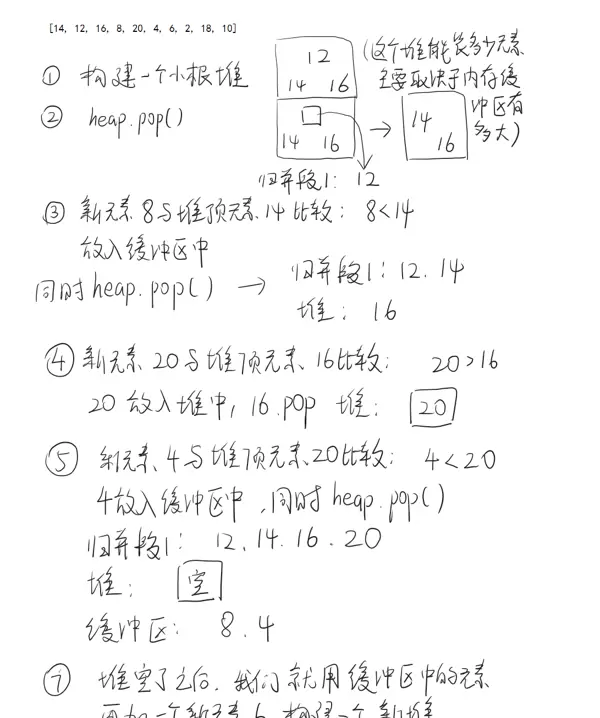 [14, 12, 16, 8, 20, 4, 6, 2, 18, 10]
① 构建一个小根堆
12
14 16
(这个堆能装多少元素
主要取决于内存缓
冲区有
多大)
② heap.pop()
14 16
→
14
16
归并段1: 12
③ 新元素 8与堆顶元素 14 比较: 8<14
放入缓冲区中
同时heap.pop() → 归并段1: 12. 14
堆: 16
④ 新元素 20与堆顶元素 16比较: 20>16
20 放入堆中, 16.pop 堆: 20
⑤ 新元素 4与堆顶元素20比较: 4<20
4放入缓冲区中,同时heap.pop()
归并段1: 12. 14. 16. 20
堆: 空
缓冲区: 8. 4
⑦ 堆空了之后, 我们就用缓冲区中的元素
再加一个新元素6 构建一个新堆